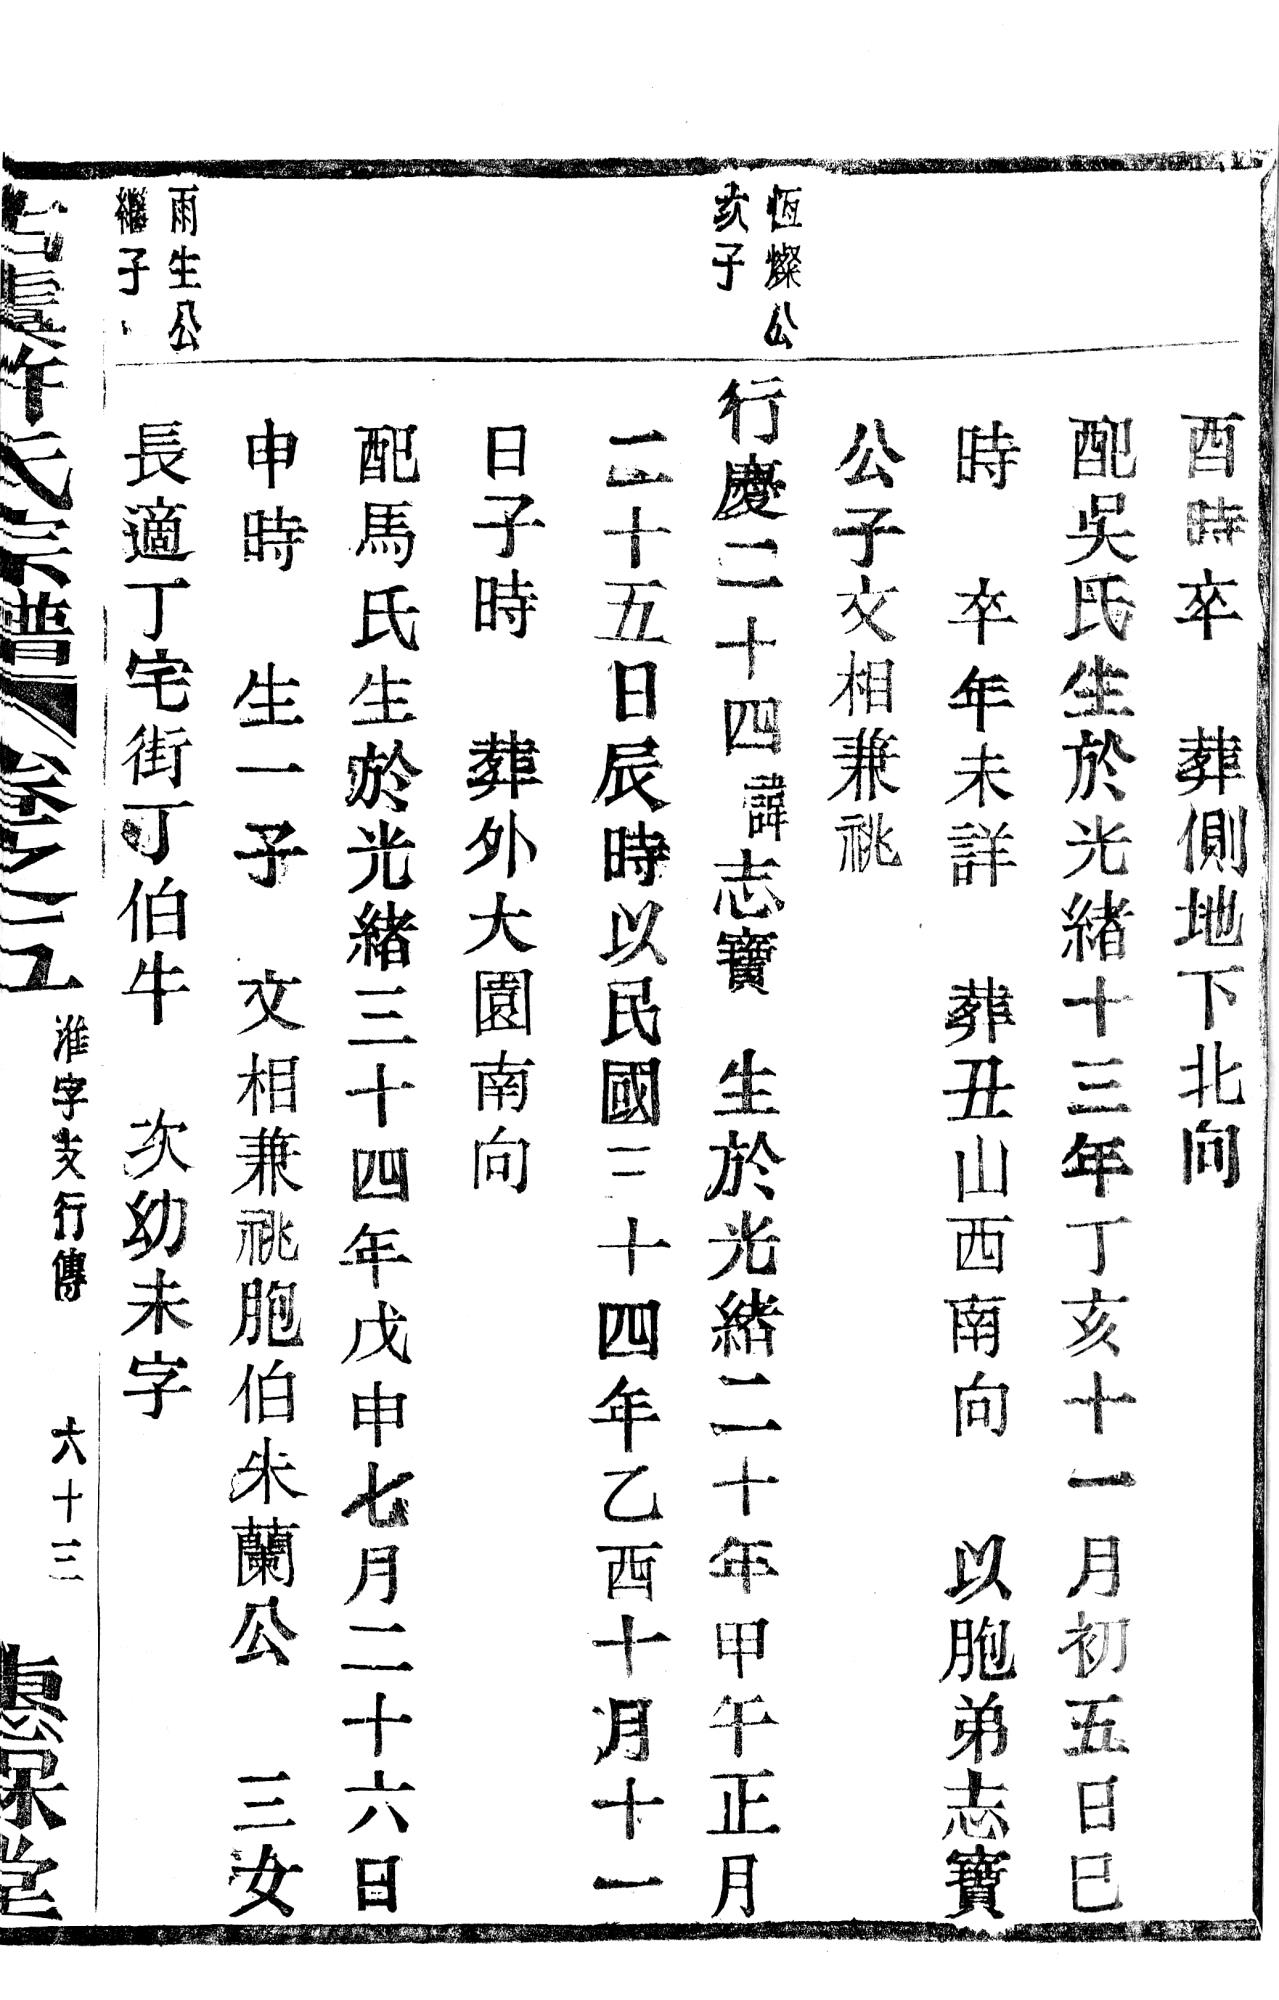 酉時卒　葬側地下北向
配吳氏生於光緒十三年丁亥十一月初五日巳
時　卒年未詳　葬丑山西南向　以胞弟志寶
公子文相兼祧
恆燦公
次子
行慶二十四諱志寶　生於光緒二十年甲午正月
二十五日辰時以民國三十四年乙酉十月十一
日子時　葬外大園南向
配馬氏生於光緒三十四年戊申七月二十六日
申時　生一子　文相兼祧胞伯朱蘭公　三女
雨生公
繼子
長適丁宅街丁伯牛　次幼未字
古虞許氏宗譜　卷之三五　淮字支行傳　六十三　惠保堂